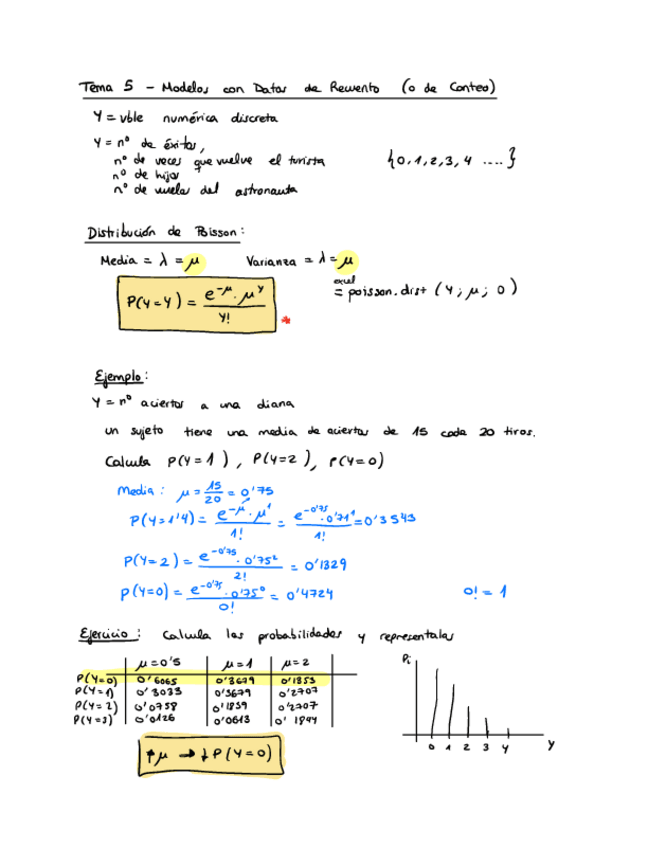 Tema 5 - Modelos con Datos de Recuento (o de Conteo)
Y = vble numérica discreta
Y = nº de éxitos,
nº de veces que vuelve el turista {0,1,2,3,4 ....}
nº de hijos
nº de vuelos del astronauta
Distribución de Poisson:
Media = λ = μ Varianza = λ = μ
P(Y=Y) = e^-μ · μ^Y / Y!
excel
= poisson.dist (Y; μ; 0)
Ejemplo:
Y = nº aciertos a una diana
un sujeto tiene una media de aciertos de 15 cada 20 tiros.
Calcula P(Y=1), P(Y=2), P(Y=0)
Media: μ = 15/20 = 0'75
P(Y=1'4) = e^-μ · μ^1 / 1! = e^-0'75 · 0'71^1 / 1! = 0'3543
P(Y=2) = e^-0'75 · 0'75^2 / 2! = 0'1329
P(Y=0) = e^-0'75 · 0'75^0 / 0! = 0'4724 0! = 1
Ejercicio: Calcula las probabilidades y representalas
μ=0'5 μ=1 μ=2
P(Y=0) 0'6065 0'3679 0'1353
P(Y=1) 0'3033 0'3679 0'2707
P(Y=2) 0'0758 0'1839 0'2707
P(Y=3) 0'0126 0'0613 0'1844
↑μ → ↓P(Y=0)
Pi
0 1 2 3 4 Y